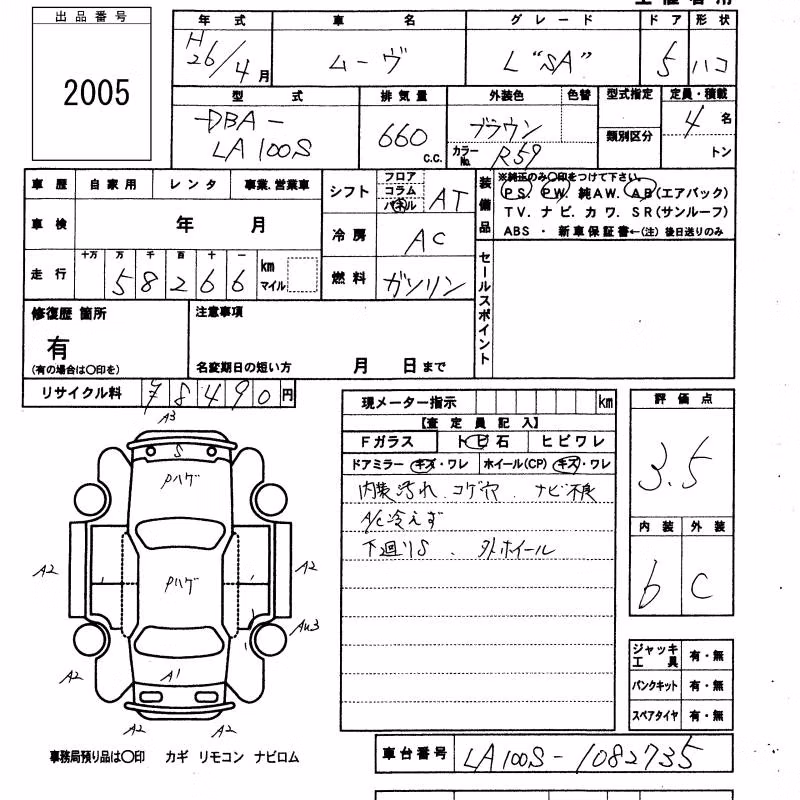 出品番号
2005
年式 車名 グレード ドア 形状
H26/4月 ムーヴ L "SA" 5 ハコ
型式 排気量 外装色 色替 型式指定 定員・積載
DBA-
LA100S 660 c.c. ブラウン 類別区分 4 名
カラーNo. R59 トン
車歴 自家用 レンタ 事業.営業車
シフト フロア コラム パネル AT
装備品 ※純正のみ〇印をつけて下さい。
PS. PW. 純AW. AB(エアバック)
TV. ナビ. カワ. SR(サンルーフ)
ABS ・ 新車保証書←(注) 後日送りのみ
車検 年 月
冷房 AC
走行 十万 万 千 百 十 一
58266 km マイル
燃料 ガソリン
セールスポイント
修復歴 箇所
有
(有の場合は〇印を)
注意事項
名変期日の短い方 月 日まで
リサイクル料 ¥8490円
現メーター指示 km
【査定員記入】
Fガラス トビ石 ヒビワレ
ドアミラー キズ・ワレ ホイール(CP) キズ・ワレ
内装汚れ. コゲ穴. ナビ不良
A/C冷えず
下廻りS. 外ホイール
評価点
3.5
内装 外装
b C
ジャッキ 工具 有・無
パンクキット 有・無
スペアタイヤ 有・無
A3
S
Pハゲ
A2 Pハゲ A2
A2 A1
A2 A2
事務局預り品は〇印 カギ リモコン ナビロム
車台番号 LA100S-1082735